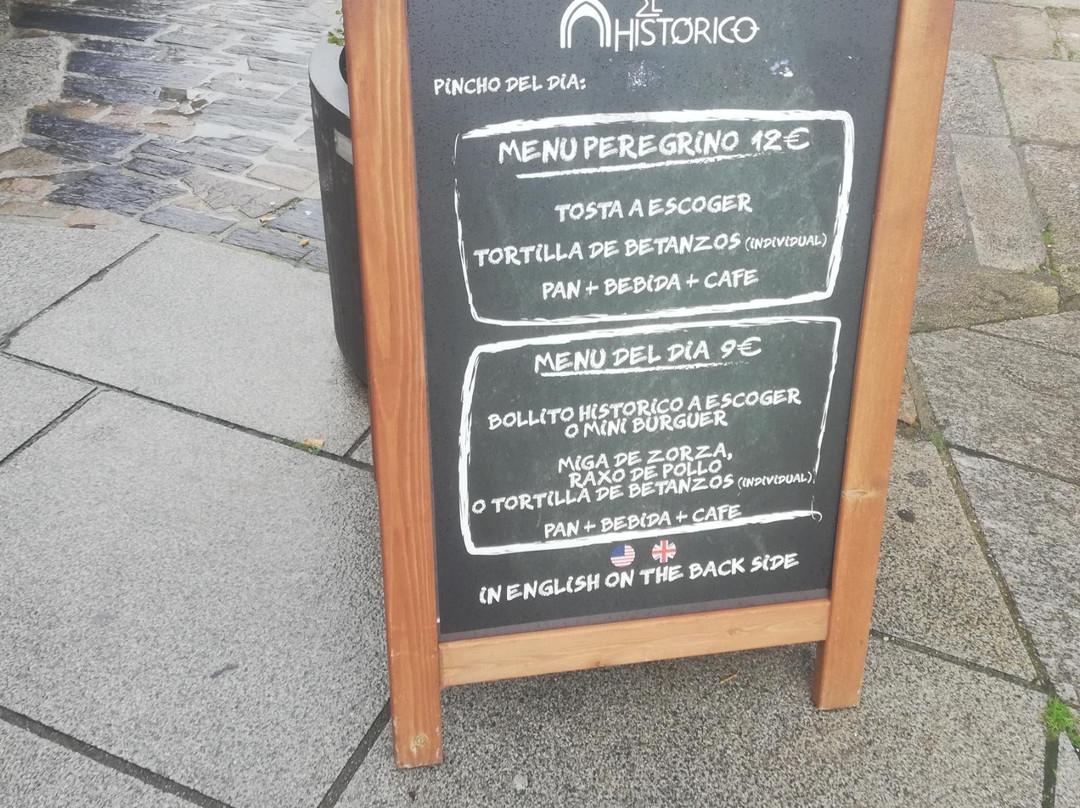 EL
HISTÓRICO
PINCHO DEL DIA:
MENU PEREGRINO 12€
TOSTA A ESCOGER
TORTILLA DE BETANZOS (INDIVIDUAL)
PAN + BEBIDA + CAFE
MENU DEL DIA 9€
BOLLITO HISTORICO A ESCOGER
O MINI BURGUER
MIGA DE ZORZA,
RAXO DE POLLO
O TORTILLA DE BETANZOS (INDIVIDUAL)
PAN + BEBIDA + CAFE
IN ENGLISH ON THE BACK SIDE